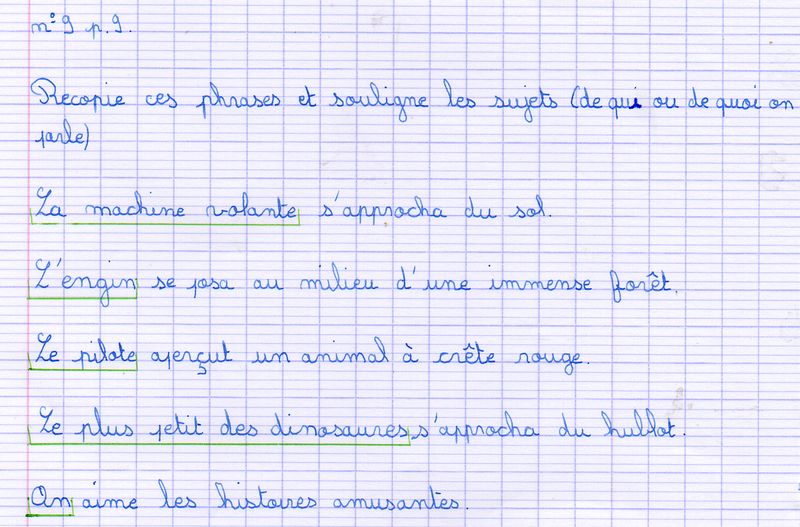 n° 9 p. 9.
Recopie ces phrases et souligne les sujets (de qui ou de quoi on
parle)
La machine volante s'approcha du sol.
L'engin se posa au milieu d'une immense forêt.
Le pilote aperçut un animal à crête rouge.
Le plus petit des dinosaures s'approcha du hublot.
On aime les histoires amusantes.